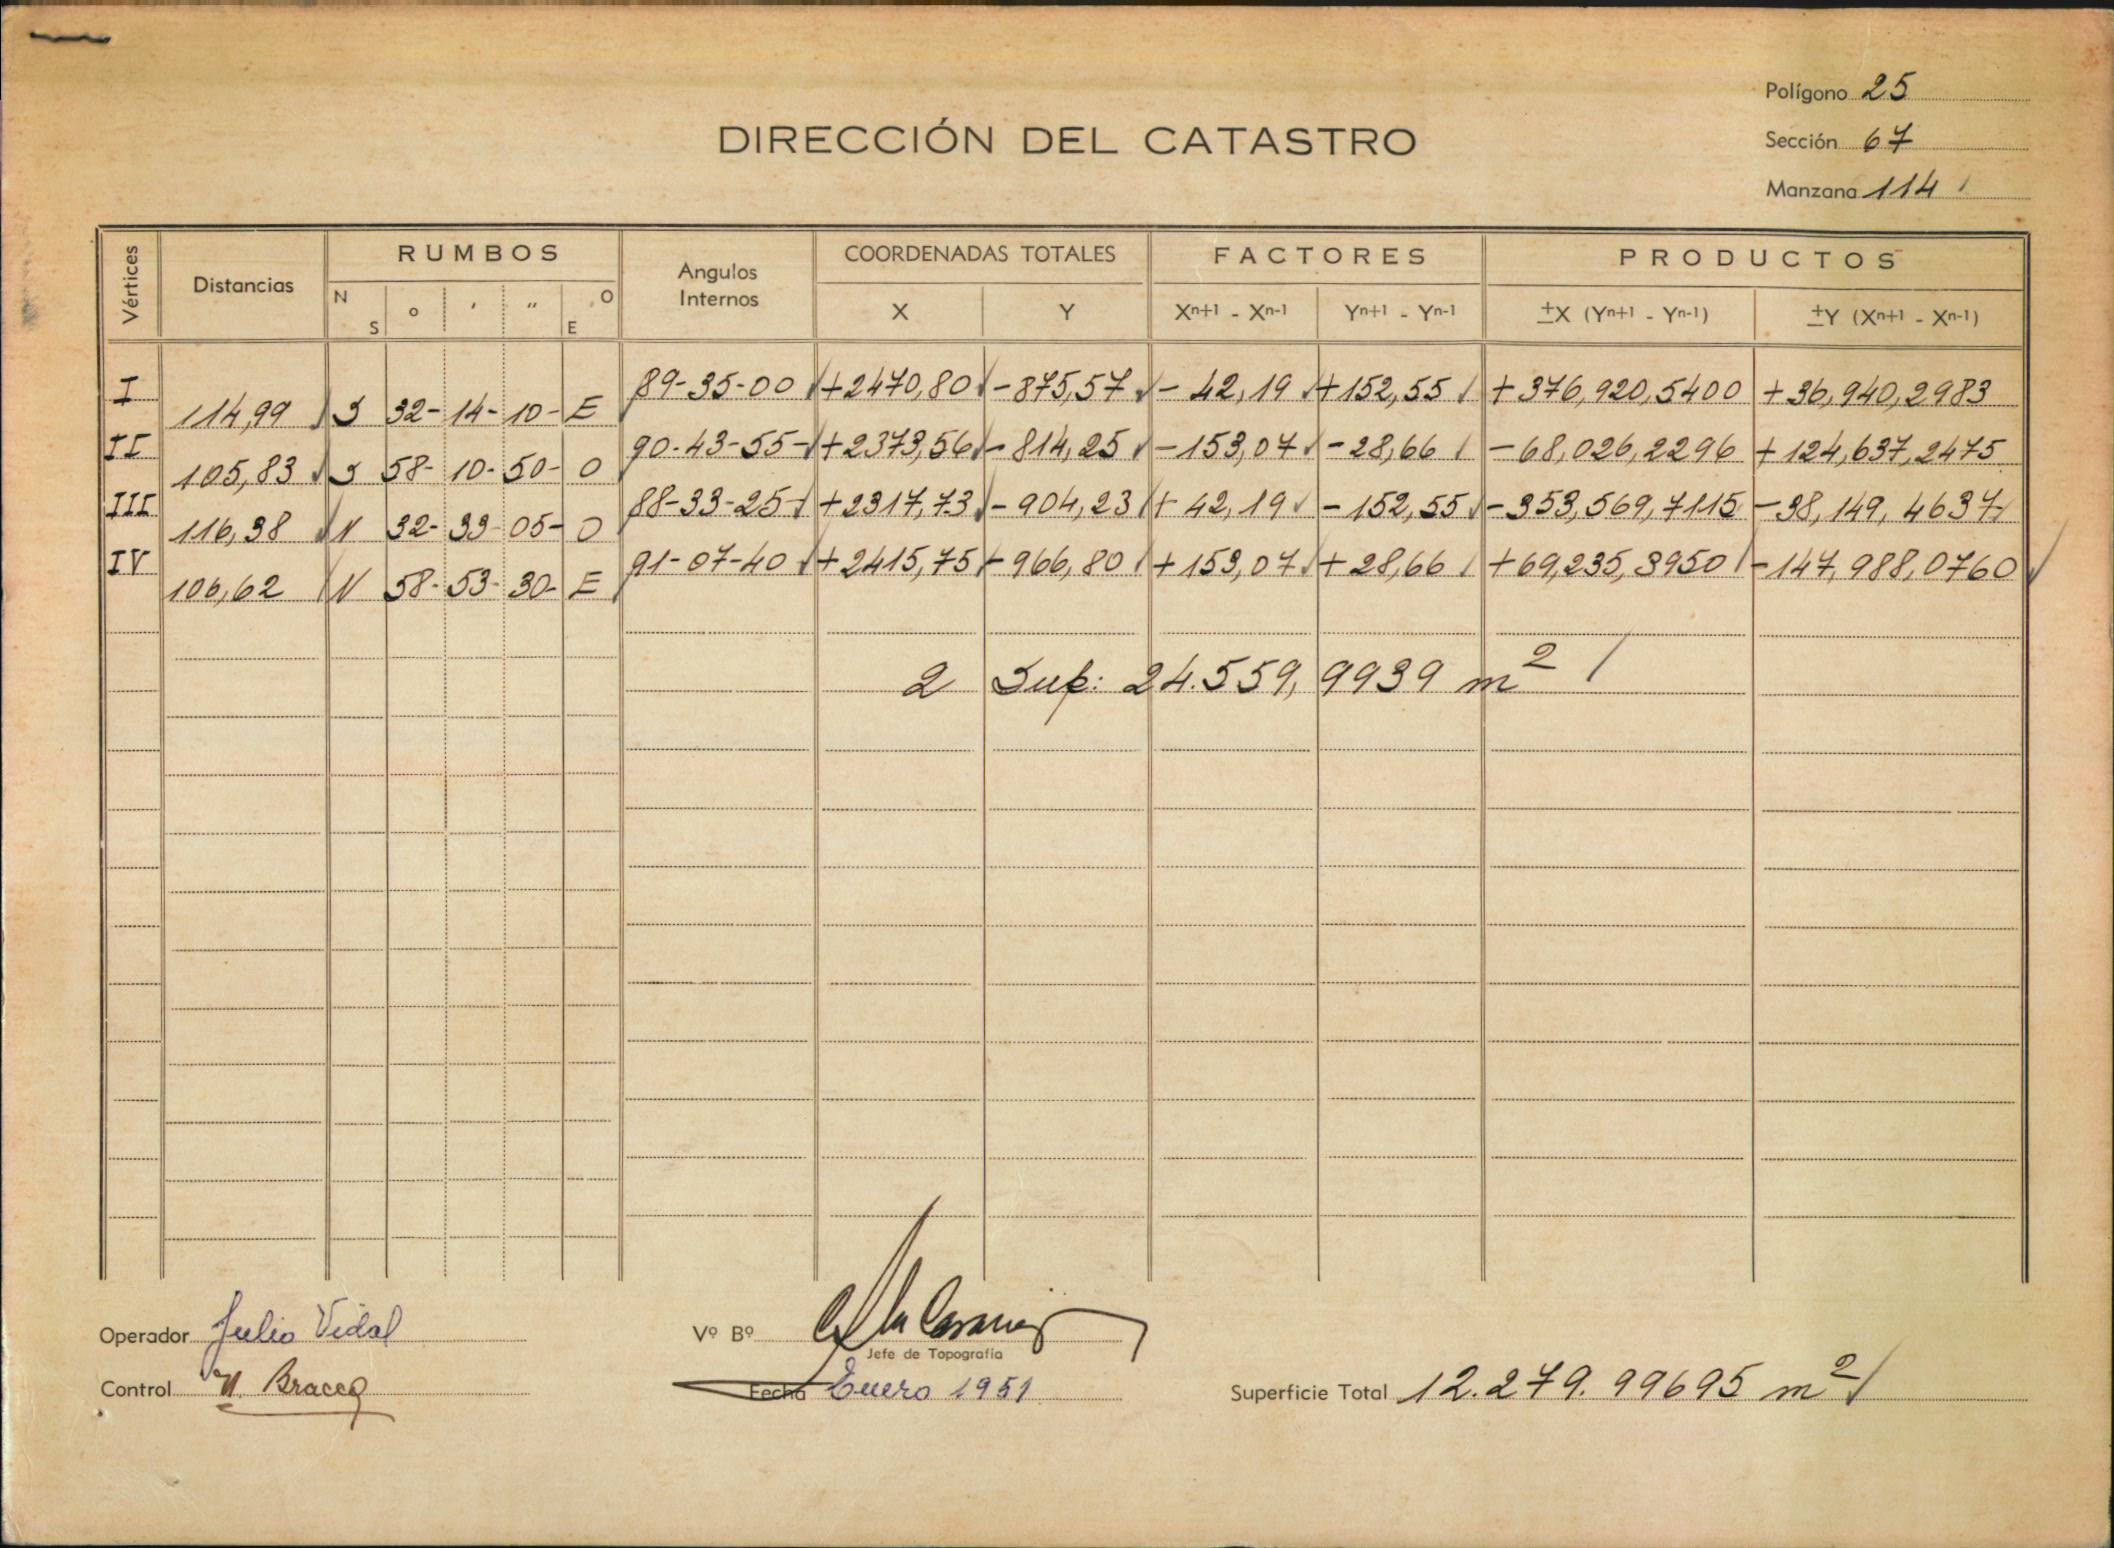 Polígono 25
DIRECCIÓN DEL CATASTRO
Sección 67
Manzana 114
Vértices Distancias RUMBOS Angulos Internos COORDENADAS TOTALES FACTORES PRODUCTOS
N S o ' " O E X Y Xn+1 - Xn-1 Yn+1 - Yn-1 ±X (Yn+1 - Yn-1) ±Y (Xn+1 - Xn-1)
I 89-35-00 +2470,80 -875,57 - 42,19 +152,55 +376,920,5400 +36,940,2983
114,99 S 32- 14- 10- E
II 90-43-55- +2373,56 -814,25 -153,07 -28,66 -68,026,2296 +124,637,2475
105,83 S 58- 10- 50- O
III 88-33-25- +2317,73 -904,23 + 42,19 -152,55 -353,569,7115 -38,149,4637
116,38 N 32- 33 05- O
IV 91-07-40 +2415,75 -966,80 +153,07 +28,66 +69,235,3950 -147,988,0760
106,62 N 58- 53- 30- E
2 Sup: 24.559,9939 m²
Operador Julio Vidal
Vº Bº
Jefe de Topografía
Control Bracco
Fecha Enero 1951
Superficie Total 12.279.99695 m²